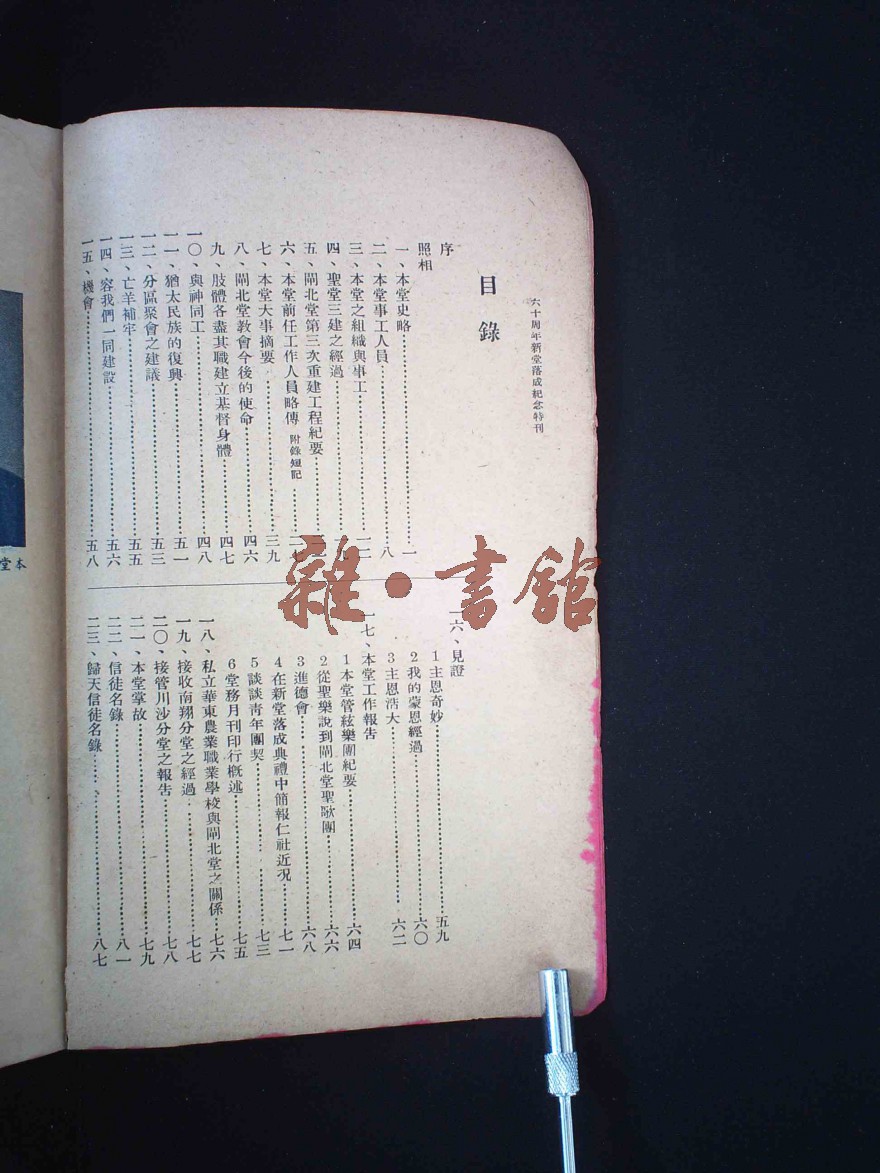 六十周年新堂落成紀念特刊
目錄
序
照相
一、本堂史略……一
二、本堂事工人員……八
三、本堂之組織與事工……一二
四、聖堂三建之經過……
五、閘北堂第三次重建工程紀要……
六、本堂前任工作人員略傳 附錄短記……
七、本堂大事摘要……三九
八、閘北堂教會今後的使命……四六
九、肢體各盡其職建立基督身體……四七
一〇、與神同工……四八
一一、猶太民族的復興……五一
一二、分區聚會之建議……五三
一三、亡羊補牢……五五
一四、容我們一同建設……五六
一五、機會……五八
一六、見證
1主恩奇妙……五九
2我的蒙恩經過……六〇
3主恩浩大……六二
一七、本堂工作報告
1本堂管絃樂團紀要……六四
2從聖樂說到閘北堂聖歌團……六六
3進德會……六八
4在新堂落成典禮中簡報仁社近況……七一
5談談靑年團契……七三
6堂務月刊印行概述……七五
一八、私立華東農業職業學校與閘北堂之關係……七六
一九、接收南翔分堂之經過……七七
二〇、接管川沙分堂之報告……七八
二一、本堂掌故……七九
二二、信徒名錄……八一
二三、歸天信徒名錄……八七
本堂
雜·書館